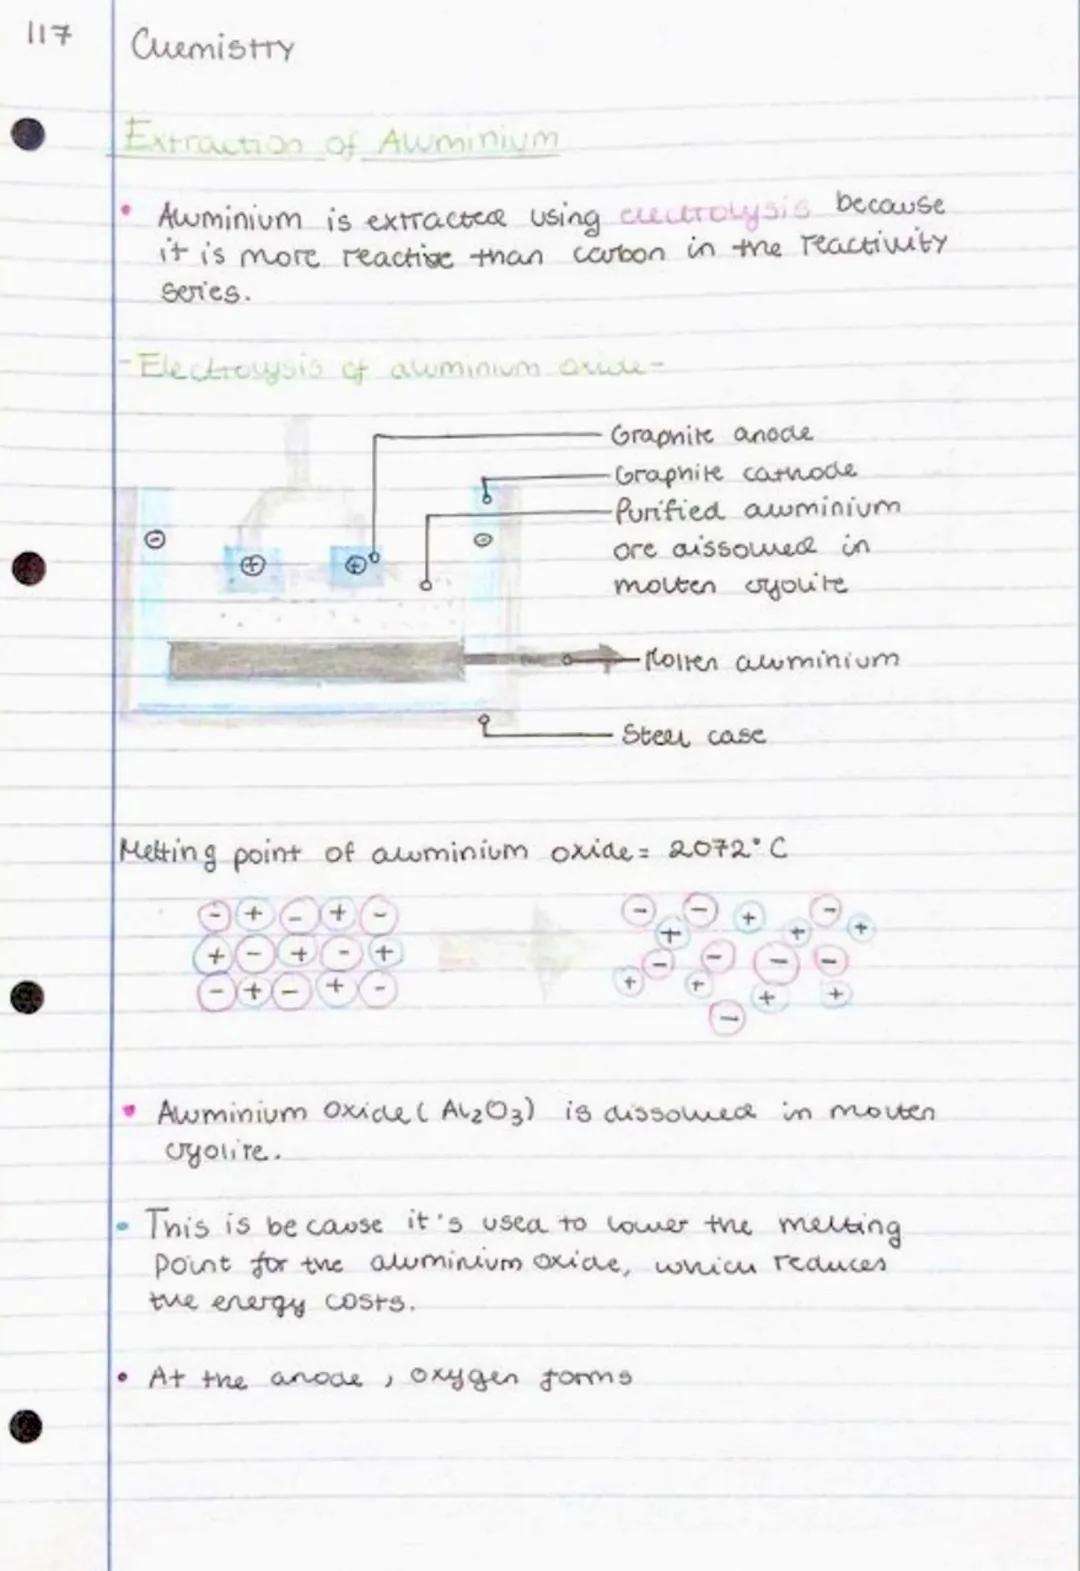 117
Chemistry
Extraction of Aluminium
• Aluminium is extracted using electrolysis because
it is more reactive than carbon in the reactivity
series.
-Electrolysis of aluminium oxide-
Graphite anode
Graphite cathode
Purified aluminium
ore dissolved in
molten cryolite
Molten aluminium
Steel case
- + + -
Melting point of aluminium oxide = 2072°C
- + - + -
+ - + - +
- + - + -
- - + - + +
+ - - - -
+ + + + -
• Aluminium Oxide (Al2O3) is dissolved in molten
cryolite.
• This is because it's used to lower the melting
point for the aluminium oxide, which reduces
the energy costs.
• At the anode, oxygen forms